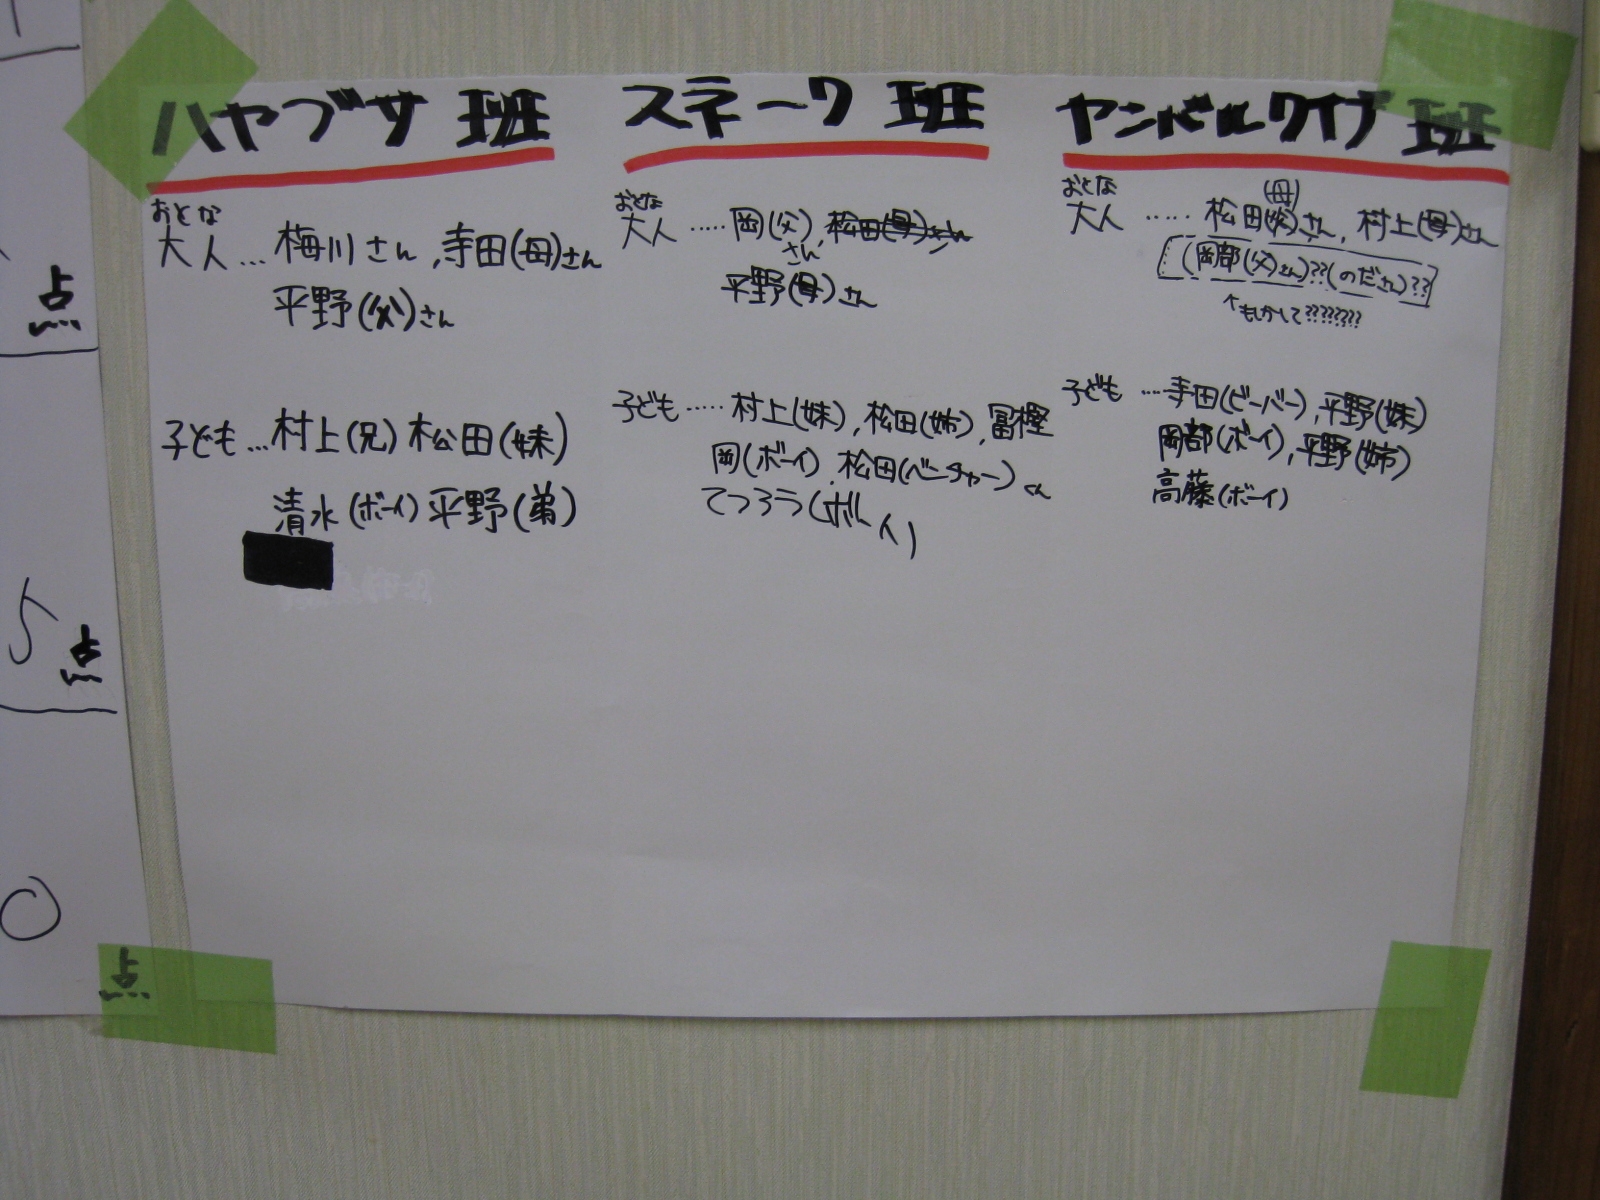 ハヤブサ 班
おとな
大人…梅川さん,寺田(母)さん
平野(父)さん
子ども…村上(兄) 松田(妹)
清水(ボーイ) 平野(弟)
スネーク 班
おとな
大人……岡(父),松田(母)さん
さん
平野(母)さん
子ども……村上(妹),松田(姉),冨樫
岡(ボーイ),松田(ベンチャー)くん
てつろう(ボーイ)
ヤンバルクイナ 班
おとな
(母)
大人……松田(父)さん,村上(母)さん
(岡部(父)さん)??(のださん)??
↑もしかして????????
子ども…寺田(ビーバー),平野(妹)
岡部(ボーイ),平野(姉)
高藤(ボーイ)
点
5点
0
点